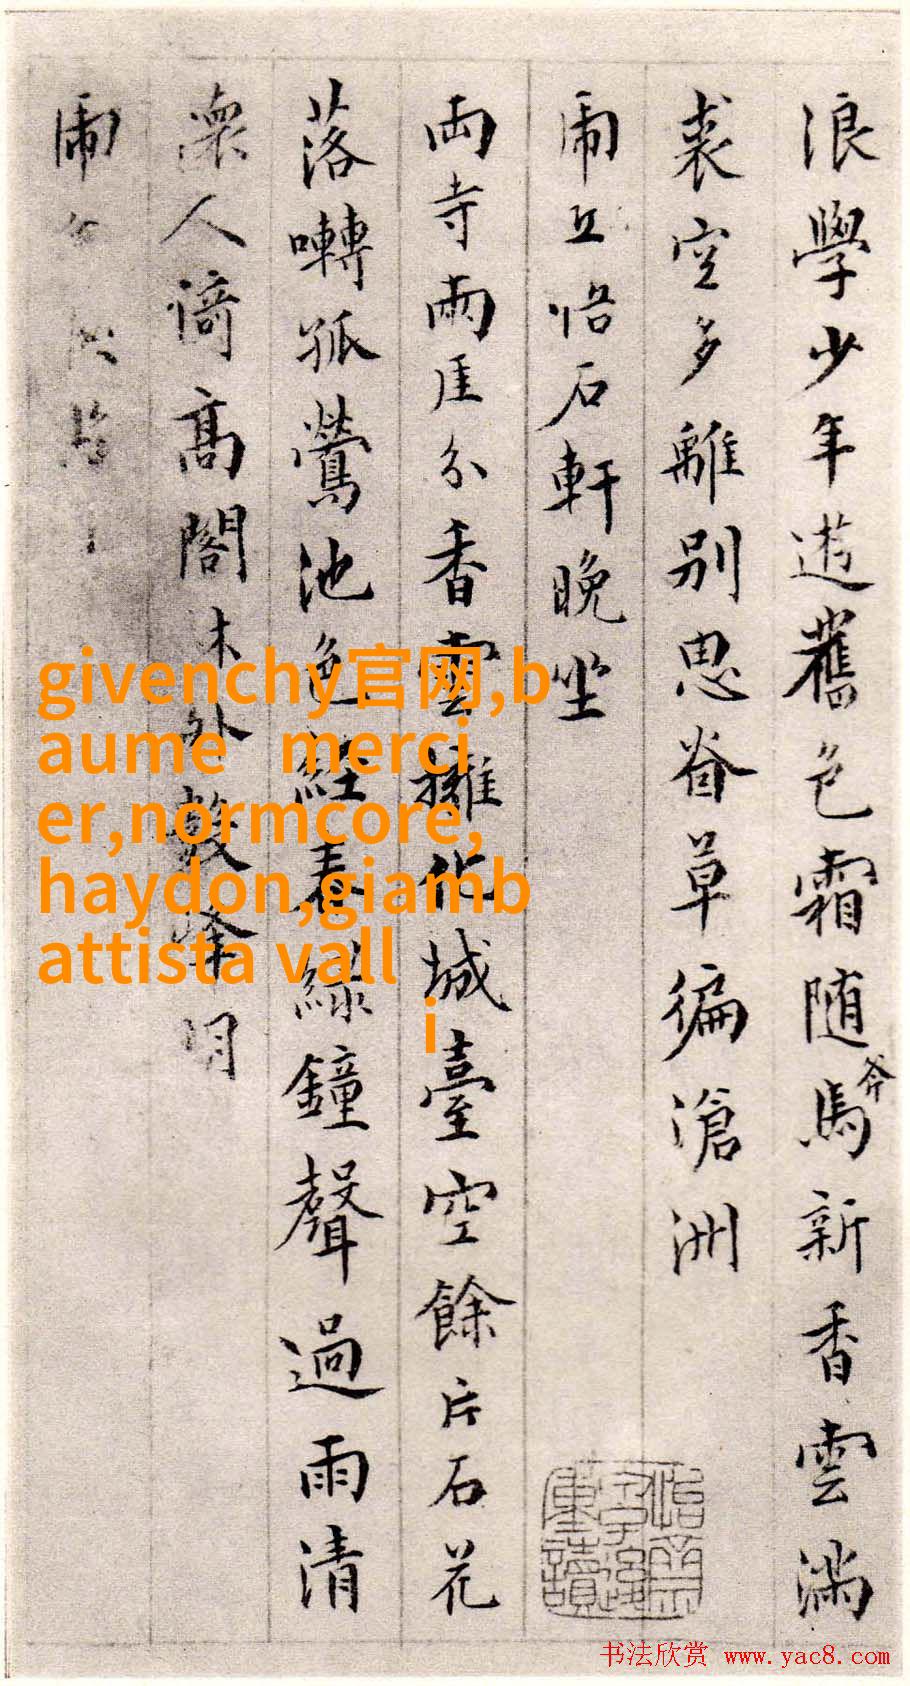 浪學少年遊舊色霜随馬新香雲滿
斧
裘空多離別思眷草徧滄洲
悟石軒晚坐
兩寺兩厓分香雲擁化城臺空餘片石花
落囀孤鶯池色經春綠鐘聲過雨清
人倚高閣木外數峰明
givenchy官网,b
aume merci
er,normcore,
haydon,giamb
attista vall
i
书法欣赏 www.yac8.com